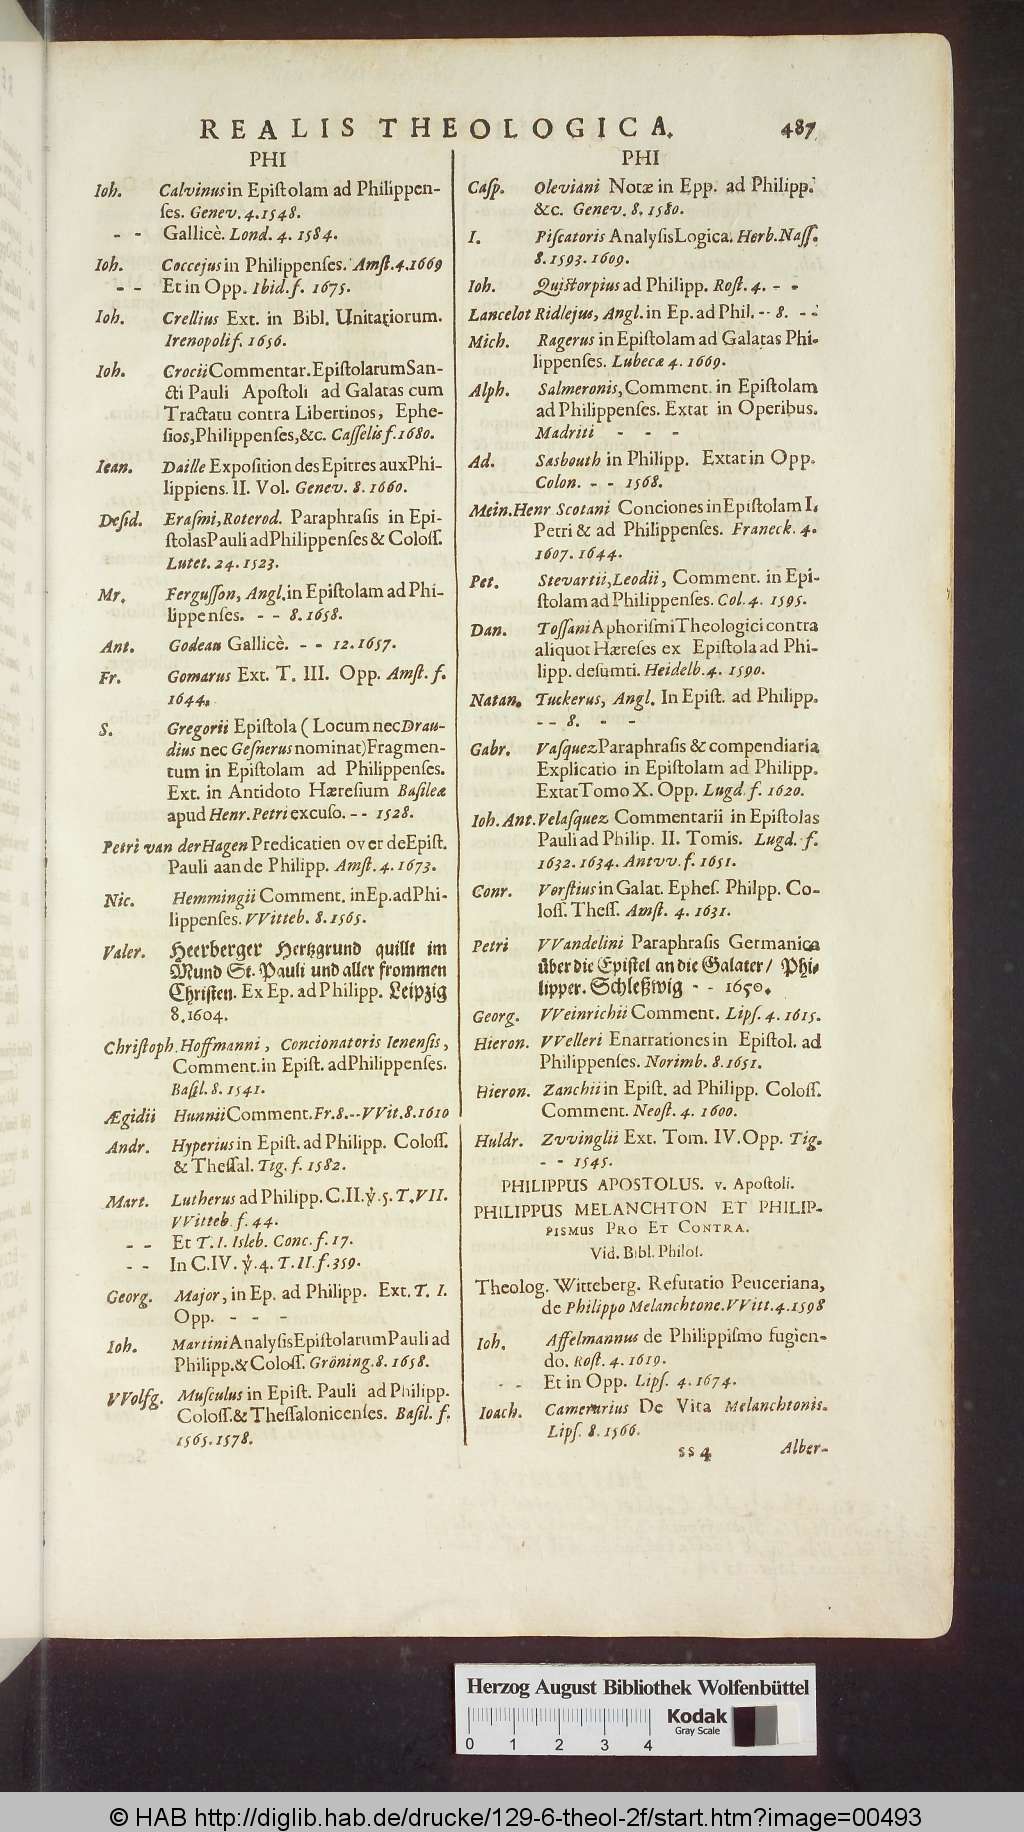 REALIS THEOLOGICA. 487
PHI
Ioh. Calvinus in Epiſtolam ad Philippen-
ſes. Genev. 4. 1548.
- - Gallicè. Lond. 4. 1584.
Ioh. Coccejus in Philippenſes. Amſt. 4. 1669
- - Et in Opp. Ibid. f. 1675.
Ioh. Crellius Ext. in Bibl. Unitariorum.
Irenopoli f. 1656.
Ioh. Crocii Commentar. Epiſtolarum San-
cti Pauli Apoſtoli ad Galatas cum
Tractatu contra Libertinos, Ephe-
ſios, Philippenſes, &c. Caſſelis f. 1680.
Iean. Daille Expoſition des Epitres aux Phi-
lippiens. II. Vol. Genev. 8. 1660.
Deſid. Eraſmi, Roterod. Paraphraſis in Epi-
ſtolas Pauli ad Philippenſes & Coloſſ.
Lutet. 24. 1523.
Mr. Ferguſſon, Angl. in Epiſtolam ad Phi-
lippenſes. - - 8. 1658.
Ant. Godeau Gallicè. - - 12. 1657.
Fr. Gomarus Ext. T. III. Opp. Amſt. f.
1644.
S. Gregorii Epiſtola (Locum nec Drau-
dius nec Geſnerus nominat) Fragmen-
tum in Epiſtolam ad Philippenſes.
Ext. in Antidoto Hæreſium Baſileæ
apud Henr. Petri excuſo. - - 1528.
Petri van der Hagen Predicatien over de Epiſt.
Pauli aan de Philipp. Amſt. 4. 1673.
Nic. Hemmingii Comment. in Ep. ad Phi-
lippenſes. VVitteb. 8. 1565.
Valer. Heerberger Hertzgrund quillt im
Mund St. Pauli und aller frommen
Chriſten. Ex Ep. ad Philipp. Leipzig
8. 1604.
Chriſtoph. Hoffmanni, Concionatoris Ienenſis,
Comment. in Epiſt. ad Philippenſes.
Baſil. 8. 1541.
Ægidii Hunnii Comment. Fr. 8. - - VVit. 8. 1610
Andr. Hyperius in Epiſt. ad Philipp. Coloſſ.
& Theſſal. Tig. f. 1582.
Mart. Lutherus ad Philipp. C. II. ℣. 5. T. VII.
VVitteb. f. 44.
- - Et T. I. Isleb. Conc. f. 17.
- - In C. IV. ℣. 4. T. II. f. 359.
Georg. Major, in Ep. ad Philipp. Ext. T. I.
Opp. - - -
Ioh. Martini Analyſis Epiſtolarum Pauli ad
Philipp. & Coloſſ. Gröning. 8. 1658.
VVolfg. Muſculus in Epiſt. Pauli ad Philipp.
Coloſſ. & Theſſalonicenſes. Baſil. f.
1565. 1578.
PHI
Caſp. Oleviani Notæ in Epp. ad Philipp.
&c. Genev. 8. 1580.
I. Piſcatoris Analyſis Logica. Herb. Naſſ.
8. 1593. 1609.
Ioh. Quiſtorpius ad Philipp. Roſt. 4. - -
Lancelot Ridlejus, Angl. in Ep. ad Phil. - - 8. - -
Mich. Ragerus in Epiſtolam ad Galatas Phi-
lippenſes. Lubecæ 4. 1669.
Alph. Salmeronis, Comment. in Epiſtolam
ad Philippenſes. Extat in Operibus.
Madriti - - -
Ad. Sasbouth in Philipp. Extat in Opp.
Colon. - - 1568.
Mein. Henr Scotani Conciones in Epiſtolam I.
Petri & ad Philippenſes. Franeck. 4.
1607. 1644.
Pet. Stevartii, Leodii, Comment. in Epi-
ſtolam ad Philippenſes. Col. 4. 1595.
Dan. Toſſani Aphoriſmi Theologici contra
aliquot Hæreſes ex Epiſtola ad Phi-
lipp. deſumti. Heidelb. 4. 1590.
Natan. Tuckerus, Angl. In Epiſt. ad Philipp.
- - 8. - -
Gabr. Vaſquez Paraphraſis & compendiaria
Explicatio in Epiſtolam ad Philipp.
Extat Tomo X. Opp. Lugd. f. 1620.
Ioh. Ant. Velaſquez Commentarii in Epiſtolas
Pauli ad Philip. II. Tomis. Lugd. f.
1632. 1634. Antvv. f. 1651.
Conr. Vorſtius in Galat. Epheſ. Philpp. Co-
loſſ. Theſſ. Amſt. 4. 1631.
Petri VVandelini Paraphraſis Germanica
über die Epiſtel an die Galater/ Phi-
lipper. Schleßwig - - 1650.
Georg. VVeinrichii Comment. Lipſ. 4. 1615.
Hieron. VVelleri Enarrationes in Epiſtol. ad
Philippenſes. Norimb. 8. 1651.
Hieron. Zanchii in Epiſt. ad Philipp. Coloſſ.
Comment. Neoſt. 4. 1600.
Huldr. Zvvinglii Ext. Tom. IV. Opp. Tig.
- - 1545.
PHILIPPUS APOSTOLUS. v. Apoſtoli.
PHILIPPUS MELANCHTON ET PHILIP-
PISMUS PRO ET CONTRA.
Vid. Bibl. Philoſ.
Theolog. Witteberg. Refutatio Peuceriana,
de Philippo Melanchtone. VVitt. 4. 1598
Ioh. Affelmannus de Philippiſmo fugien-
do. Roſt. 4. 1619.
- - Et in Opp. Lipſ. 4. 1674.
Ioach. Camerarius De Vita Melanchtonis.
Lipſ. 8. 1566.
SS 4 Alber-
Herzog August Bibliothek Wolfenbüttel
0 1 2 3 4
Kodak
Gray Scale
© HAB http://diglib.hab.de/drucke/129-6-theol-2f/start.htm?image=00493